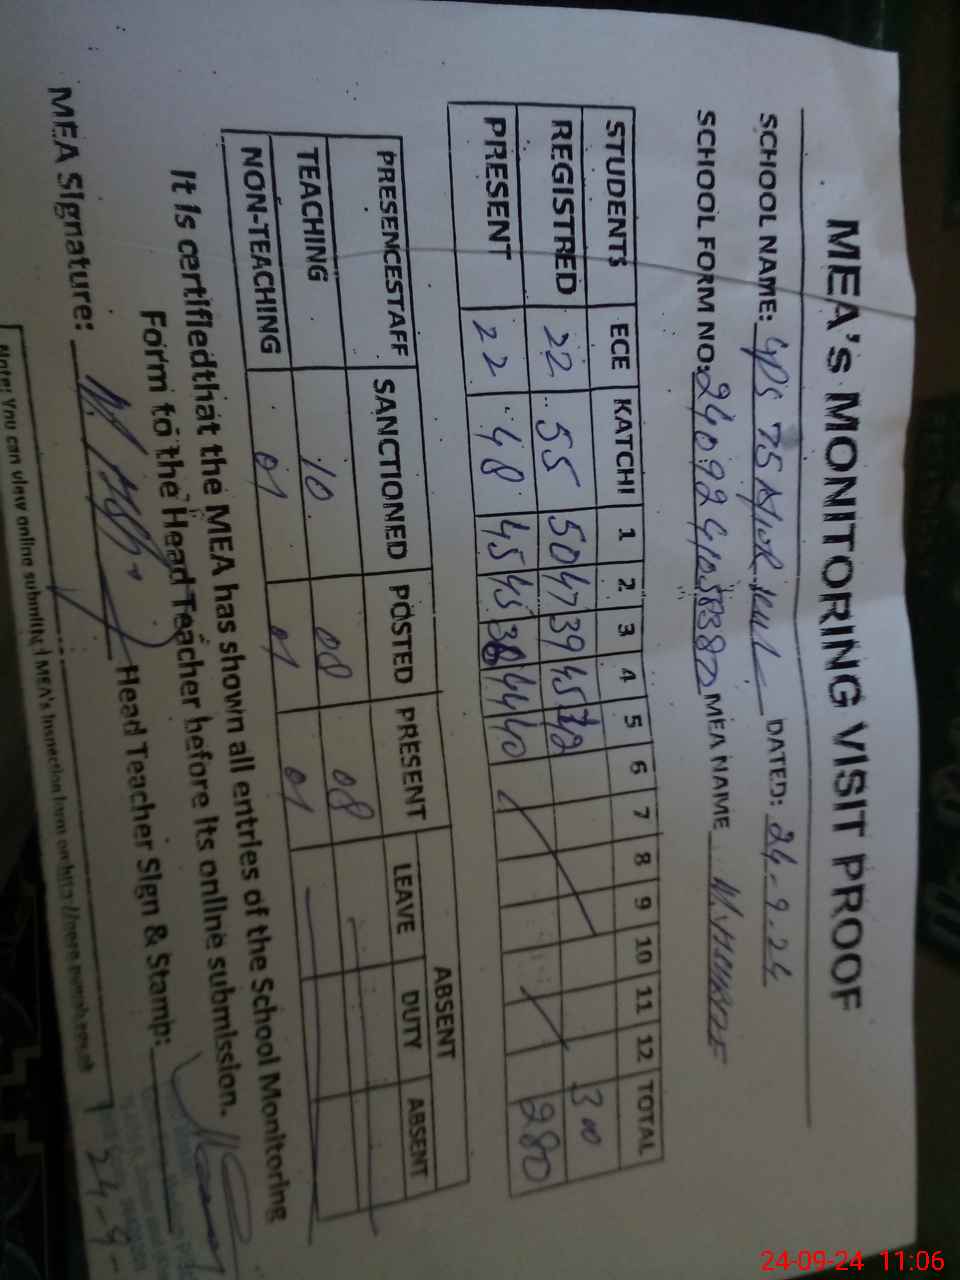 MEA's MONITORING VISIT PROOF
SCHOOL NAME: GPS 75 DATED: 24-9-24
SCHOOL FORM NO: MEA NAME
STUDENTS ECE KATCHI 1 2 3 4 5 6 7 8 9 10 11 12 TOTAL
REGISTRED 22 55 50 47 39 45 42 300
PRESENT 22 48 45 43 38 44 40 280
ABSENT
PRESENCESTAFF SANCTIONED POSTED PRESENT LEAVE DUTY ABSENT
TEACHING 10 08 08
NON-TEACHING 01 01 01
It is certifiedthat the MEA has shown all entries of the School Monitoring
Form to the Head Teacher before its online submission.
MEA Signature: Head Teacher Sign & Stamp:
24-9-
Note: You can view online submitted MEA's Inspection form on http://
24-09-24 11:06